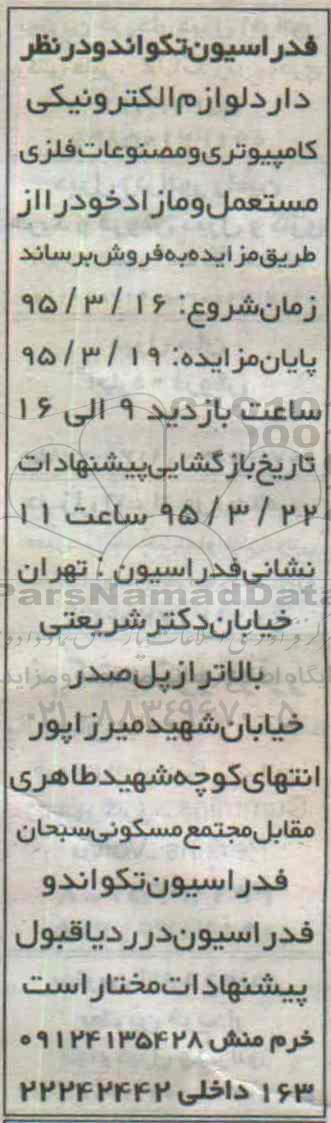 فدراسیون تکواندو در نظر
دارد لوازم الکترونیکی
کامپیوتری و مصنوعات فلزی
مستعمل و مازاد خود را از
طریق مزایده به فروش برساند
زمان شروع: ۱۶ / ۳ / ۹۵
پایان مزایده: ۱۹ / ۳ / ۹۵
ساعت بازدید ۹ الی ۱۶
تاریخ بازگشایی پیشنهادات
۲۲ / ۳ / ۹۵ ساعت ۱۱
نشانی فدراسیون : تهران
ParsNamadData
خیابان دکتر شریعتی
بالاتر از پل صدر
۰۲۱-۸۸۳۴۹۶۷۰-۵
خیابان شهید میرزاپور
انتهای کوچه شهید طاهری
مقابل مجتمع مسکونی سبحان
فدراسیون تکواندو
فدراسیون در رد یا قبول
پیشنهادات مختار است
خرم منش ۰۹۱۲۴۱۳۵۴۲۸
۱۶۳ داخلی ۲۲۲۴۲۴۴۲